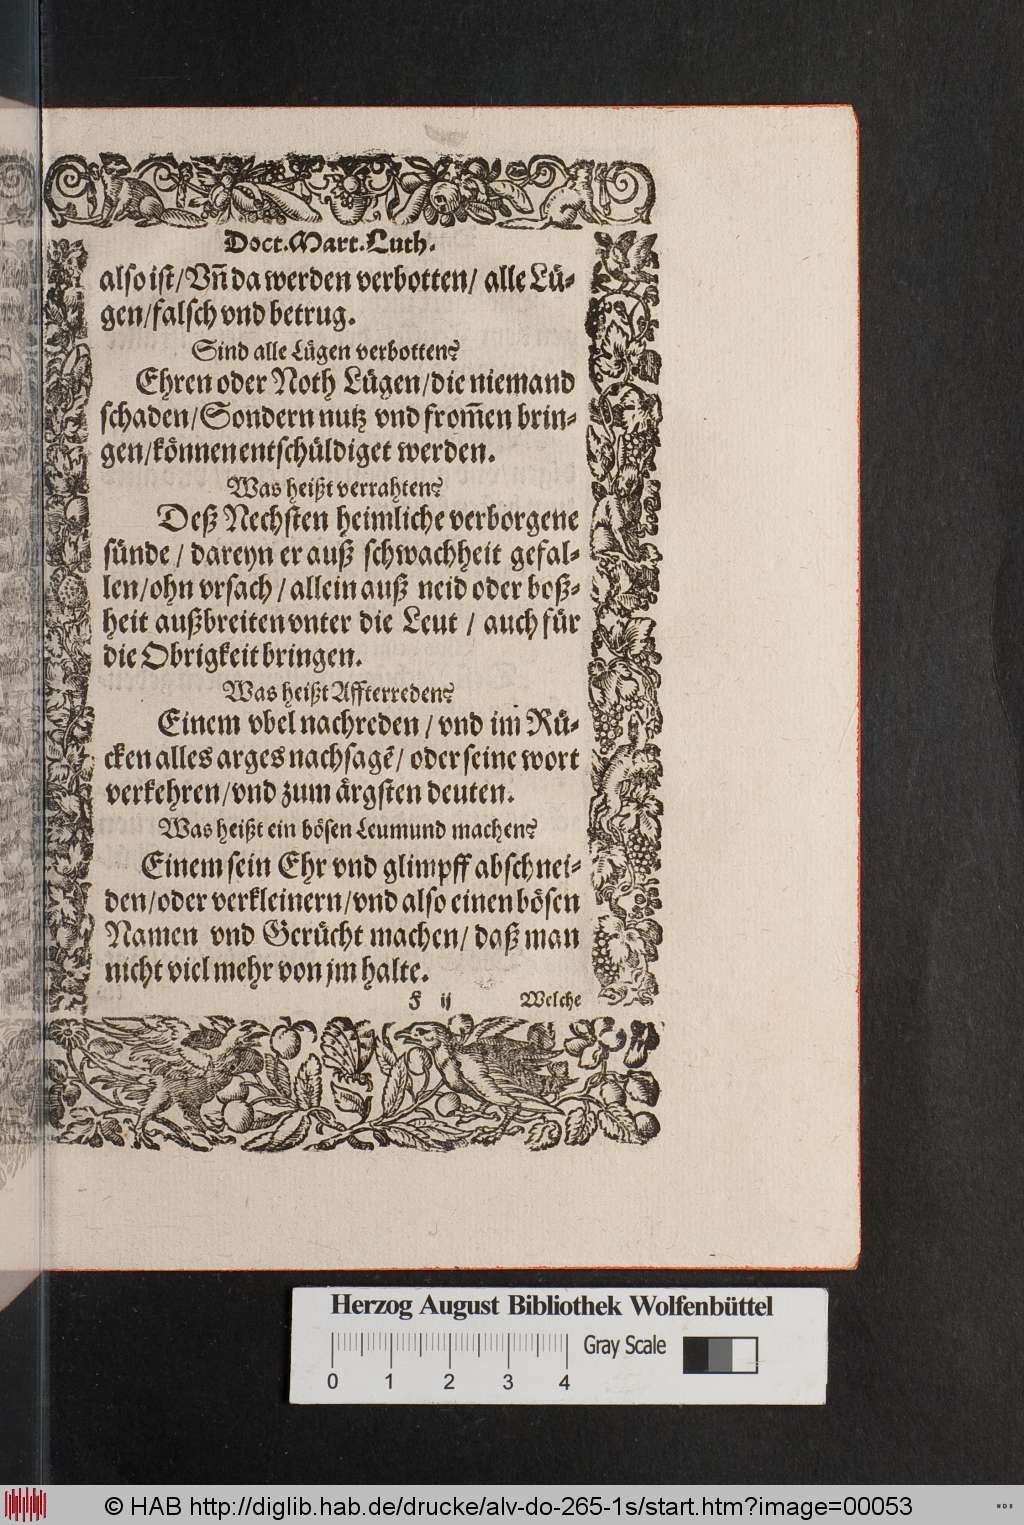 Doct. Mart. Luth.
also ist/ Vñ da werden verbotten/ alle Lü-
gen/ falsch vnd betrug.
Sind alle Lügen verbotten?
Ehren oder Noth Lügen/ die niemand
schaden/ Sondern nutz vnd from̃en brin-
gen/ können entschüldiget werden.
Was heißt verrahten?
Deß Nechsten heimliche verborgene
sünde / dareyn er auß schwachheit gefal-
len/ ohn vrsach / allein auß neid oder boß-
heit außbreiten vnter die Leut / auch für
die Obrigkeit bringen.
Was heißt Affterreden?
Einem vbel nachreden / vnd im Rü-
cken alles arges nachsagẽ/ oder seine wort
verkehren/ vnd zum ärgsten deuten.
Was heißt ein bösen Leumund machen?
Einem sein Ehr vnd glimpff abschnei-
den/ oder verkleinern/ vnd also einen bösen
Namen vnd Gerücht machen/ daß man
nicht viel mehr von jm halte.
F ij Welche
Herzog August Bibliothek Wolfenbüttel
Gray Scale
0 1 2 3 4
© HAB http://diglib.hab.de/drucke/alv-do-265-1s/start.htm?image=00053